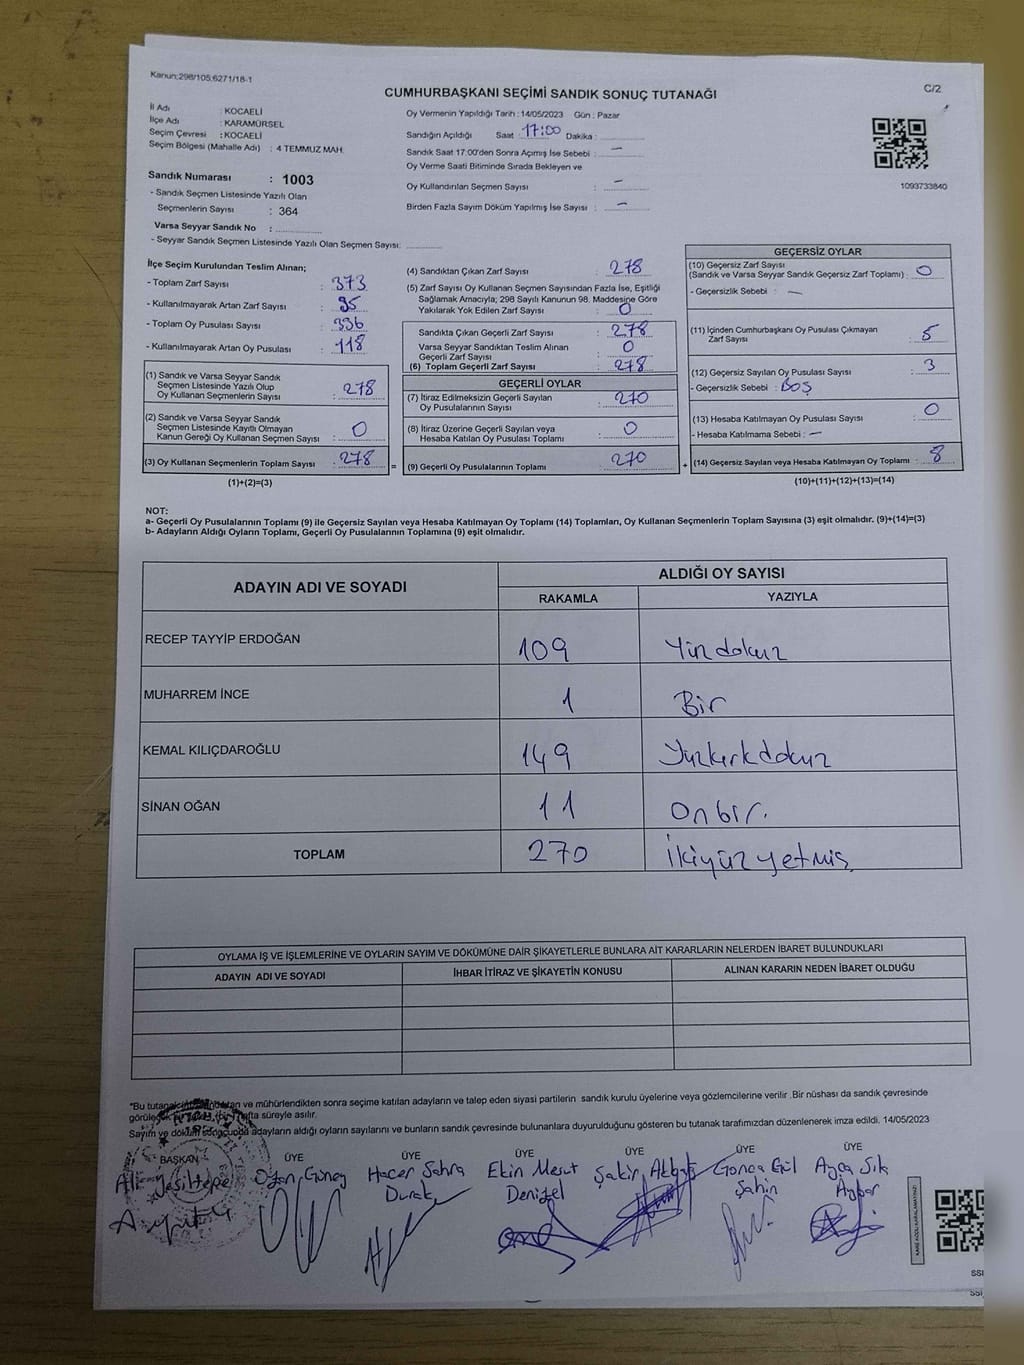 Kanun:298/105;6271/18-1
C/2
CUMHURBAŞKANI SEÇİMİ SANDIK SONUÇ TUTANAĞI
İl Adı : KOCAELİ
İlçe Adı : KARAMÜRSEL
Seçim Çevresi : KOCAELİ
Seçim Bölgesi (Mahalle Adı) : 4 TEMMUZ MAH.
Sandık Numarası : 1003
- Sandık Seçmen Listesinde Yazılı Olan
Seçmenlerin Sayısı : 364
Varsa Seyyar Sandık No :
- Seyyar Sandık Seçmen Listesinde Yazılı Olan Seçmen Sayısı:
Oy Vermenin Yapıldığı Tarih : 14/05/2023 Gün : Pazar
Sandığın Açıldığı Saat : 17:00 Dakika :
Sandık Saat 17:00'den Sonra Açımış İse Sebebi : —
Oy Verme Saati Bitiminde Sırada Bekleyen ve
Oy Kullandırılan Seçmen Sayısı : —
Birden Fazla Sayım Döküm Yapılmış İse Sayısı : —
1093733840
İlçe Seçim Kurulundan Teslim Alınan;
- Toplam Zarf Sayısı : 373
- Kullanılmayarak Artan Zarf Sayısı : 95
- Toplam Oy Pusulası Sayısı : 396
- Kullanılmayarak Artan Oy Pusulası : 118
(1) Sandık ve Varsa Seyyar Sandık
Seçmen Listesinde Yazılı Olup
Oy Kullanan Seçmenlerin Sayısı : 278
(2) Sandık ve Varsa Seyyar Sandık
Seçmen Listesinde Kayıtlı Olmayan
Kanun Gereği Oy Kullanan Seçmen Sayısı : 0
(3) Oy Kullanan Seçmenlerin Toplam Sayısı : 278
(1)+(2)=(3)
(4) Sandıktan Çıkan Zarf Sayısı : 278
(5) Zarf Sayısı Oy Kullanan Seçmen Sayısından Fazla İse, Eşitliği
Sağlamak Amacıyla; 298 Sayılı Kanunun 98. Maddesine Göre
Yakılarak Yok Edilen Zarf Sayısı : 0
Sandıkta Çıkan Geçerli Zarf Sayısı : 278
Varsa Seyyar Sandıktan Teslim Alınan
Geçerli Zarf Sayısı : 0
(6) Toplam Geçerli Zarf Sayısı : 278
GEÇERLİ OYLAR
(7) İtiraz Edilmeksizin Geçerli Sayılan
Oy Pusulalarının Sayısı : 270
(8) İtiraz Üzerine Geçerli Sayılan veya
Hesaba Katılan Oy Pusulası Toplamı : 0
= (9) Geçerli Oy Pusulalarının Toplamı : 270
GEÇERSİZ OYLAR
(10) Geçersiz Zarf Sayısı
(Sandık ve Varsa Seyyar Sandık Geçersiz Zarf Toplamı) : 0
- Geçersizlik Sebebi : —
(11) İçinden Cumhurbaşkanı Oy Pusulası Çıkmayan
Zarf Sayısı : 5
(12) Geçersiz Sayılan Oy Pusulası Sayısı : 3
- Geçersizlik Sebebi : BOŞ
(13) Hesaba Katılmayan Oy Pusulası Sayısı : 0
- Hesaba Katılmama Sebebi : —
+ (14) Geçersiz Sayılan veya Hesaba Katılmayan Oy Toplamı : 8
(10)+(11)+(12)+(13)=(14)
NOT:
a- Geçerli Oy Pusulalarının Toplamı (9) ile Geçersiz Sayılan veya Hesaba Katılmayan Oy Toplamı (14) Toplamları, Oy Kullanan Seçmenlerin Toplam Sayısına (3) eşit olmalıdır. (9)+(14)=(3)
b- Adayların Aldığı Oyların Toplamı, Geçerli Oy Pusulalarının Toplamına (9) eşit olmalıdır.
ADAYIN ADI VE SOYADI
ALDIĞI OY SAYISI
RAKAMLA YAZIYLA
RECEP TAYYİP ERDOĞAN 109 Yüzdokuz
MUHARREM İNCE 1 Bir
KEMAL KILIÇDAROĞLU 149 Yüzkırkdokuz
SİNAN OĞAN 11 Onbir.
TOPLAM 270 İkiyüzyetmiş
OYLAMA İŞ VE İŞLEMLERİNE VE OYLARIN SAYIM VE DÖKÜMÜNE DAİR ŞİKAYETLERLE BUNLARA AİT KARARLARIN NELERDEN İBARET BULUNDUKLARI
ADAYIN ADI VE SOYADI İHBAR İTİRAZ VE ŞİKAYETİN KONUSU ALINAN KARARIN NEDEN İBARET OLDUĞU
*Bu tutanak ve mühürlendikten sonra seçime katılan adayların ve talep eden siyasi partilerin sandık kurulu üyelerine veya gözlemcilerine verilir .Bir nüshası da sandık çevresinde
süreyle asılır.
Sayım ve döküm sonucuda adayların aldığı oyların sayılarını ve bunların sandık çevresinde bulunanlara duyurulduğunu gösteren bu tutanak tarafımızdan düzenlenerek imza edildi. 14/05/2023
BAŞKAN ÜYE ÜYE ÜYE ÜYE ÜYE ÜYE
Ali Yeşiltepe Ozan Güney Hacer Sahra Ekin Mesut Şakir Gonca Gül Ayça Sık
Durak Şahin